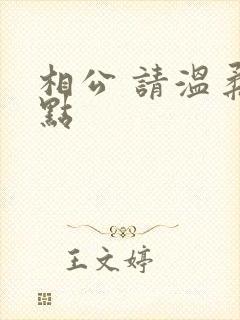 相公 請溫柔
點
王文婷